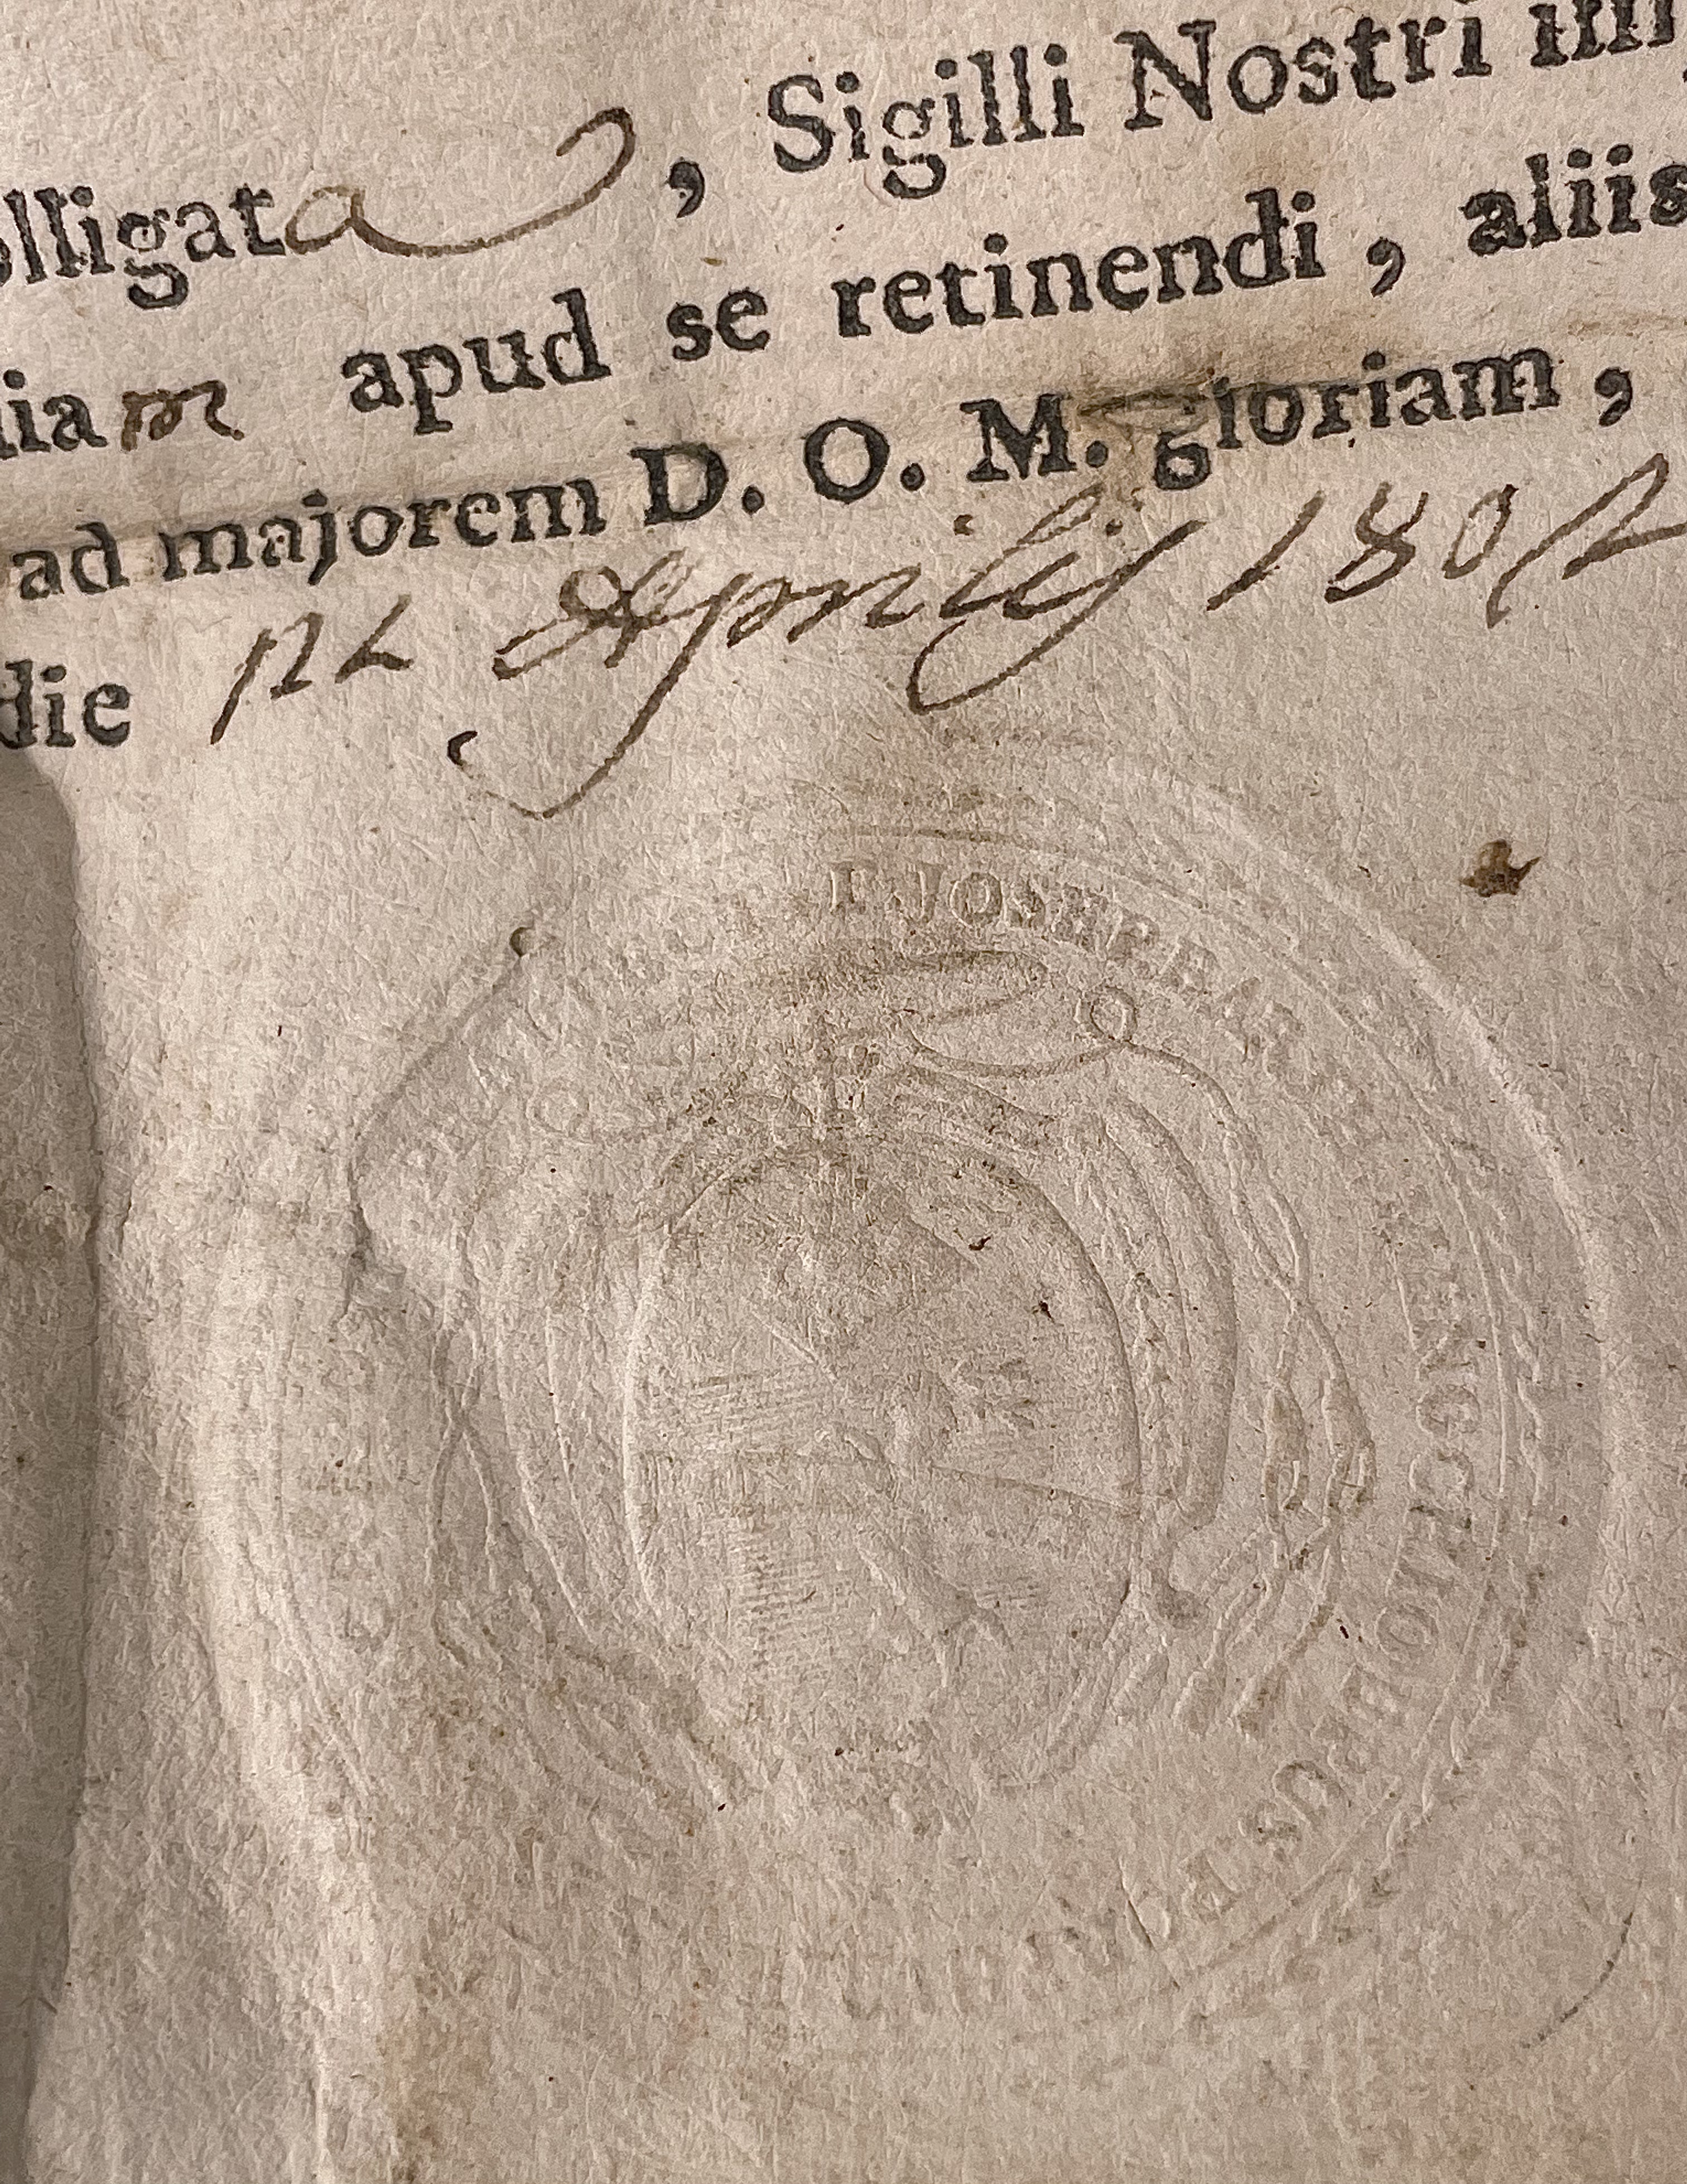 olligata, Sigilli Nostri im
iam apud se retinendi, aliis
ad majorem D. O. M. gloriam,
die 12 Aprilis 1802
F JOSEF